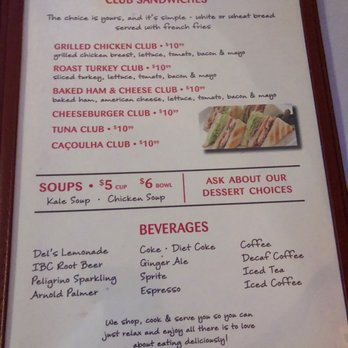 CLUB SANDWICHES
The choice is yours, and it's simple - white or wheat bread
served with french fries
GRILLED CHICKEN CLUB • $10⁹⁹
grilled chicken breast, lettuce, tomato, bacon & mayo
ROAST TURKEY CLUB • $10⁹⁹
sliced turkey, lettuce, tomato, bacon & mayo
BAKED HAM & CHEESE CLUB • $10⁹⁹
baked ham, american cheese, lettuce, tomato, bacon & mayo
CHEESEBURGER CLUB • $10⁹⁹
TUNA CLUB • $10⁹⁹
CAÇOULHA CLUB • $10⁹⁹
SOUPS • $5 CUP $6 BOWL
Kale Soup • Chicken Soup
ASK ABOUT OUR
DESSERT CHOICES
BEVERAGES
Del's Lemonade
IBC Root Beer
Peligrino Sparkling
Arnold Palmer
Coke • Diet Coke
Ginger Ale
Sprite
Espresso
Coffee
Decaf Coffee
Iced Tea
Iced Coffee
We shop, cook & serve you so you can
just relax and enjoy all there is to love
about eating deliciously!